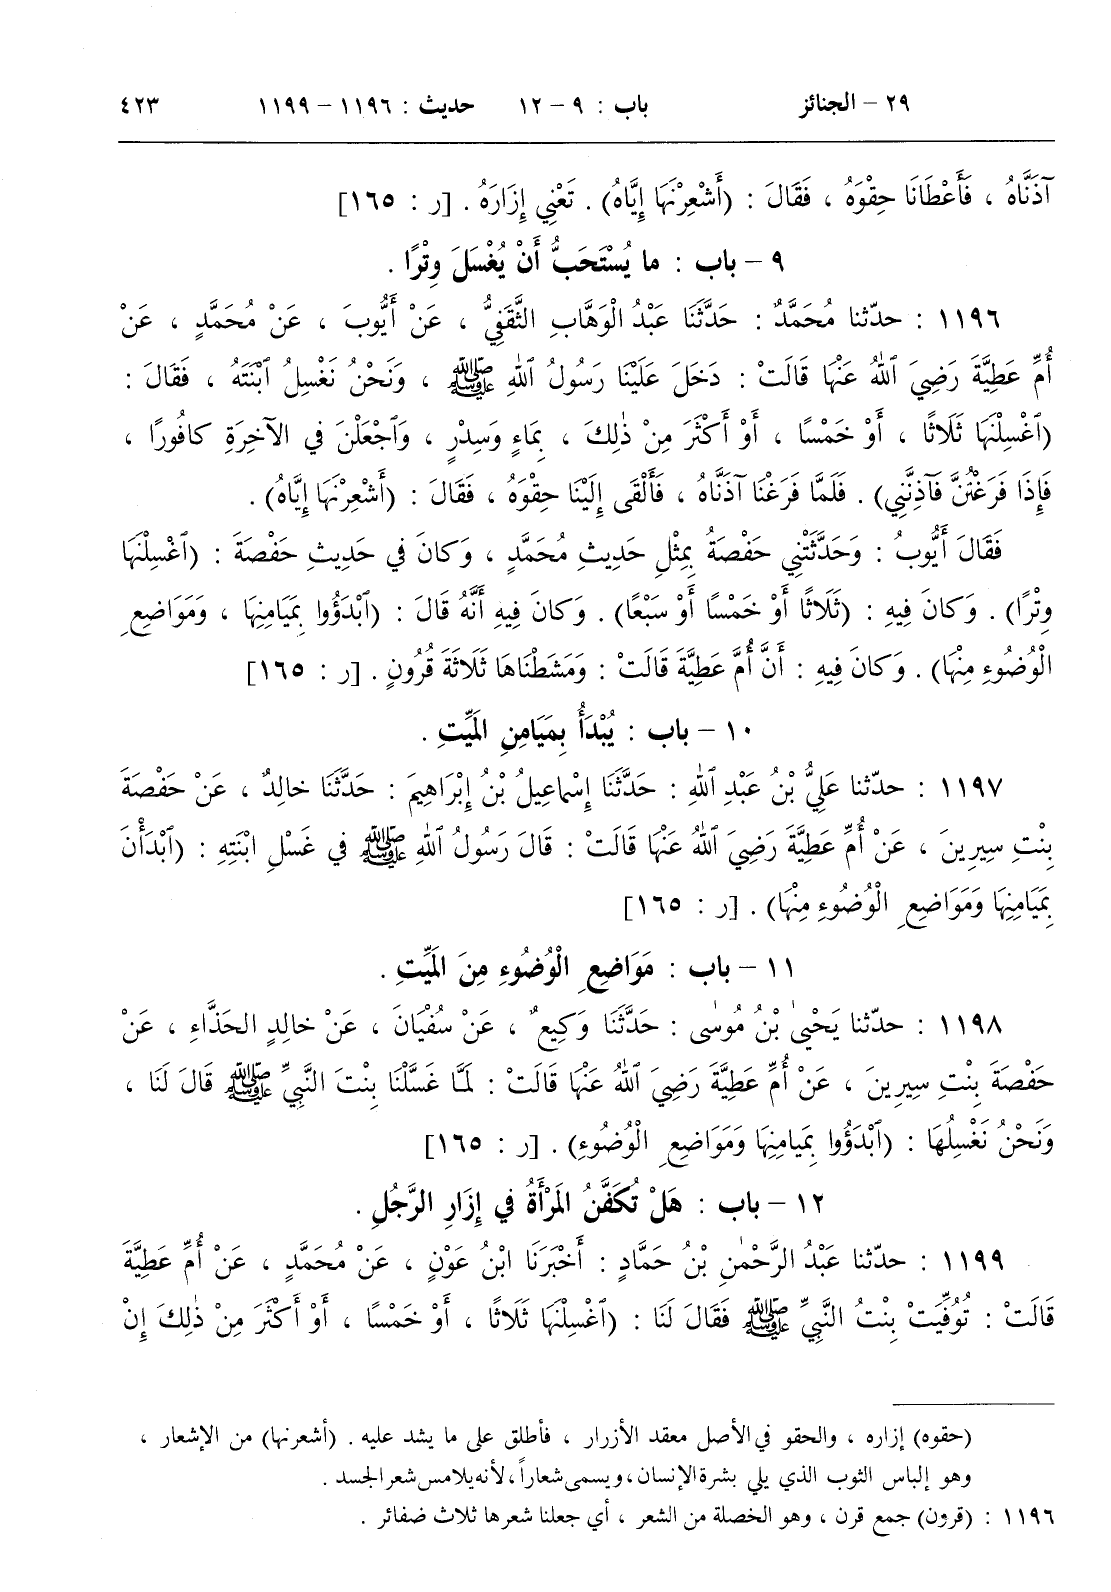 ٢٩ – الجنائز باب : ٩ – ١٢ حديث : ١١٩٦ – ١١٩٩ ٤٢٣
آذَنَّاهُ ، فَأَعْطَانَا حِقْوَهُ ، فَقَالَ : (أَشْعِرْنَهَا إِيَّاهُ) . تَعْنِي إِزَارَهُ . [ر : ١٦٥]
٩ – باب : ما يُسْتَحَبُّ أَنْ يُغْسَلَ وِتْرًا .
١١٩٦ : حدّثنا مُحَمَّدٌ : حَدَّثَنَا عَبْدُ الْوَهَّابِ الثَّقَفِيُّ ، عَنْ أَيُّوبَ ، عَنْ مُحَمَّدٍ ، عَنْ
أُمِّ عَطِيَّةَ رَضِيَ ٱللهُ عَنْهَا قَالَتْ : دَخَلَ عَلَيْنَا رَسُولُ ٱللهِ ﷺ ، وَنَحْنُ نَغْسِلُ ٱبْنَتَهُ ، فَقَالَ :
(ٱغْسِلْنَهَا ثَلَاثًا ، أَوْ خَمْسًا ، أَوْ أَكْثَرَ مِنْ ذٰلِكَ ، بِمَاءٍ وَسِدْرٍ ، وَٱجْعَلْنَ في الآخِرَةِ كافُورًا ،
فَإِذَا فَرَغْتُنَّ فَآذِنَّنِي) . فَلَمَّا فَرَغْنَا آذَنَّاهُ ، فَأَلْقَى إِلَيْنَا حِقْوَهُ ، فَقَالَ : (أَشْعِرْنَهَا إِيَّاهُ) .
فَقَالَ أَيُّوبُ : وَحَدَّثَتْنِي حَفْصَةُ بِمِثْلِ حَدِيثِ مُحَمَّدٍ ، وَكانَ في حَدِيثِ حَفْصَةَ : (ٱغْسِلْنَهَا
وِتْرًا) . وَكانَ فِيهِ : (ثَلَاثًا أَوْ خَمْسًا أَوْ سَبْعًا) . وَكانَ فِيهِ أَنَّهُ قَالَ : (ٱبْدَؤُوا بِمَيَامِنِهَا ، وَمَوَاضِعِ
الْوُضُوءِ مِنْهَا) . وَكانَ فِيهِ : أَنَّ أُمَّ عَطِيَّةَ قَالَتْ : وَمَشَطْنَاهَا ثَلَاثَةَ قُرُونٍ . [ر : ١٦٥]
١٠ – باب : يُبْدَأُ بِمَيَامِنِ المَيِّتِ .
١١٩٧ : حدّثنا عَلِيُّ بْنُ عَبْدِ ٱللهِ : حَدَّثَنَا إِسْمَاعِيلُ بْنُ إِبْرَاهِيمَ : حَدَّثَنَا خالِدٌ ، عَنْ حَفْصَةَ
بِنْتِ سِيرِينَ ، عَنْ أُمِّ عَطِيَّةَ رَضِيَ ٱللهُ عَنْهَا قَالَتْ : قَالَ رَسُولُ ٱللهِ ﷺ في غَسْلِ ابْنَتِهِ : (ٱبْدَأْنَ
بِمَيَامِنِهَا وَمَوَاضِعِ الْوُضُوءِ مِنْهَا) . [ر : ١٦٥]
١١ – باب : مَوَاضِعِ الْوُضُوءِ مِنَ المَيِّتِ .
١١٩٨ : حدّثنا يَحْيىٰ بْنُ مُوسٰى : حَدَّثَنَا وَكِيعٌ ، عَنْ سُفْيَانَ ، عَنْ خالِدٍ الحَذَّاءِ ، عَنْ
حَفْصَةَ بِنْتِ سِيرِينَ ، عَنْ أُمِّ عَطِيَّةَ رَضِيَ ٱللهُ عَنْهَا قَالَتْ : لَمَّا غَسَّلْنَا بِنْتَ النَّبِيِّ ﷺ قَالَ لَنَا ،
وَنَحْنُ نَغْسِلُهَا : (ٱبْدَؤُوا بِمَيامِنِهَا وَمَوَاضِعِ الْوُضُوءِ) . [ر : ١٦٥]
١٢ – باب : هَلْ تُكَفَّنُ المَرْأَةُ في إِزَارِ الرَّجُلِ .
١١٩٩ : حدّثنا عَبْدُ الرَّحْمٰنِ بْنُ حَمَّادٍ : أَخْبَرَنَا ابْنُ عَوْنٍ ، عَنْ مُحَمَّدٍ ، عَنْ أُمِّ عَطِيَّةَ
قَالَتْ : تُوُفِّيَتْ بِنْتُ النَّبِيِّ ﷺ فَقَالَ لَنَا : (ٱغْسِلْنَهَا ثَلَاثًا ، أَوْ خَمْسًا ، أَوْ أَكْثَرَ مِنْ ذٰلِكَ إِنْ
(حقوه) إزاره ، والحقو في الأصل معقد الأزرار ، فأطلق على ما يشد عليه . (أشعرنها) من الإشعار ،
وهو إلباس الثوب الذي يلي بشرة الإنسان ، ويسمى شعاراً ، لأنه يلامس شعر الجسد .
١١٩٦ : (قرون) جمع قرن ، وهو الخصلة من الشعر ، أي جعلنا شعرها ثلاث ضفائر .